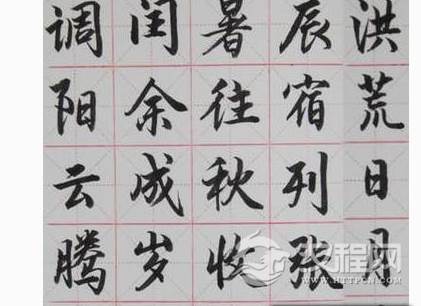 洪荒日月
辰宿列张
暑往秋收
闰余成岁
调阳云腾
汉程网
WWW.HTTPCN.COM